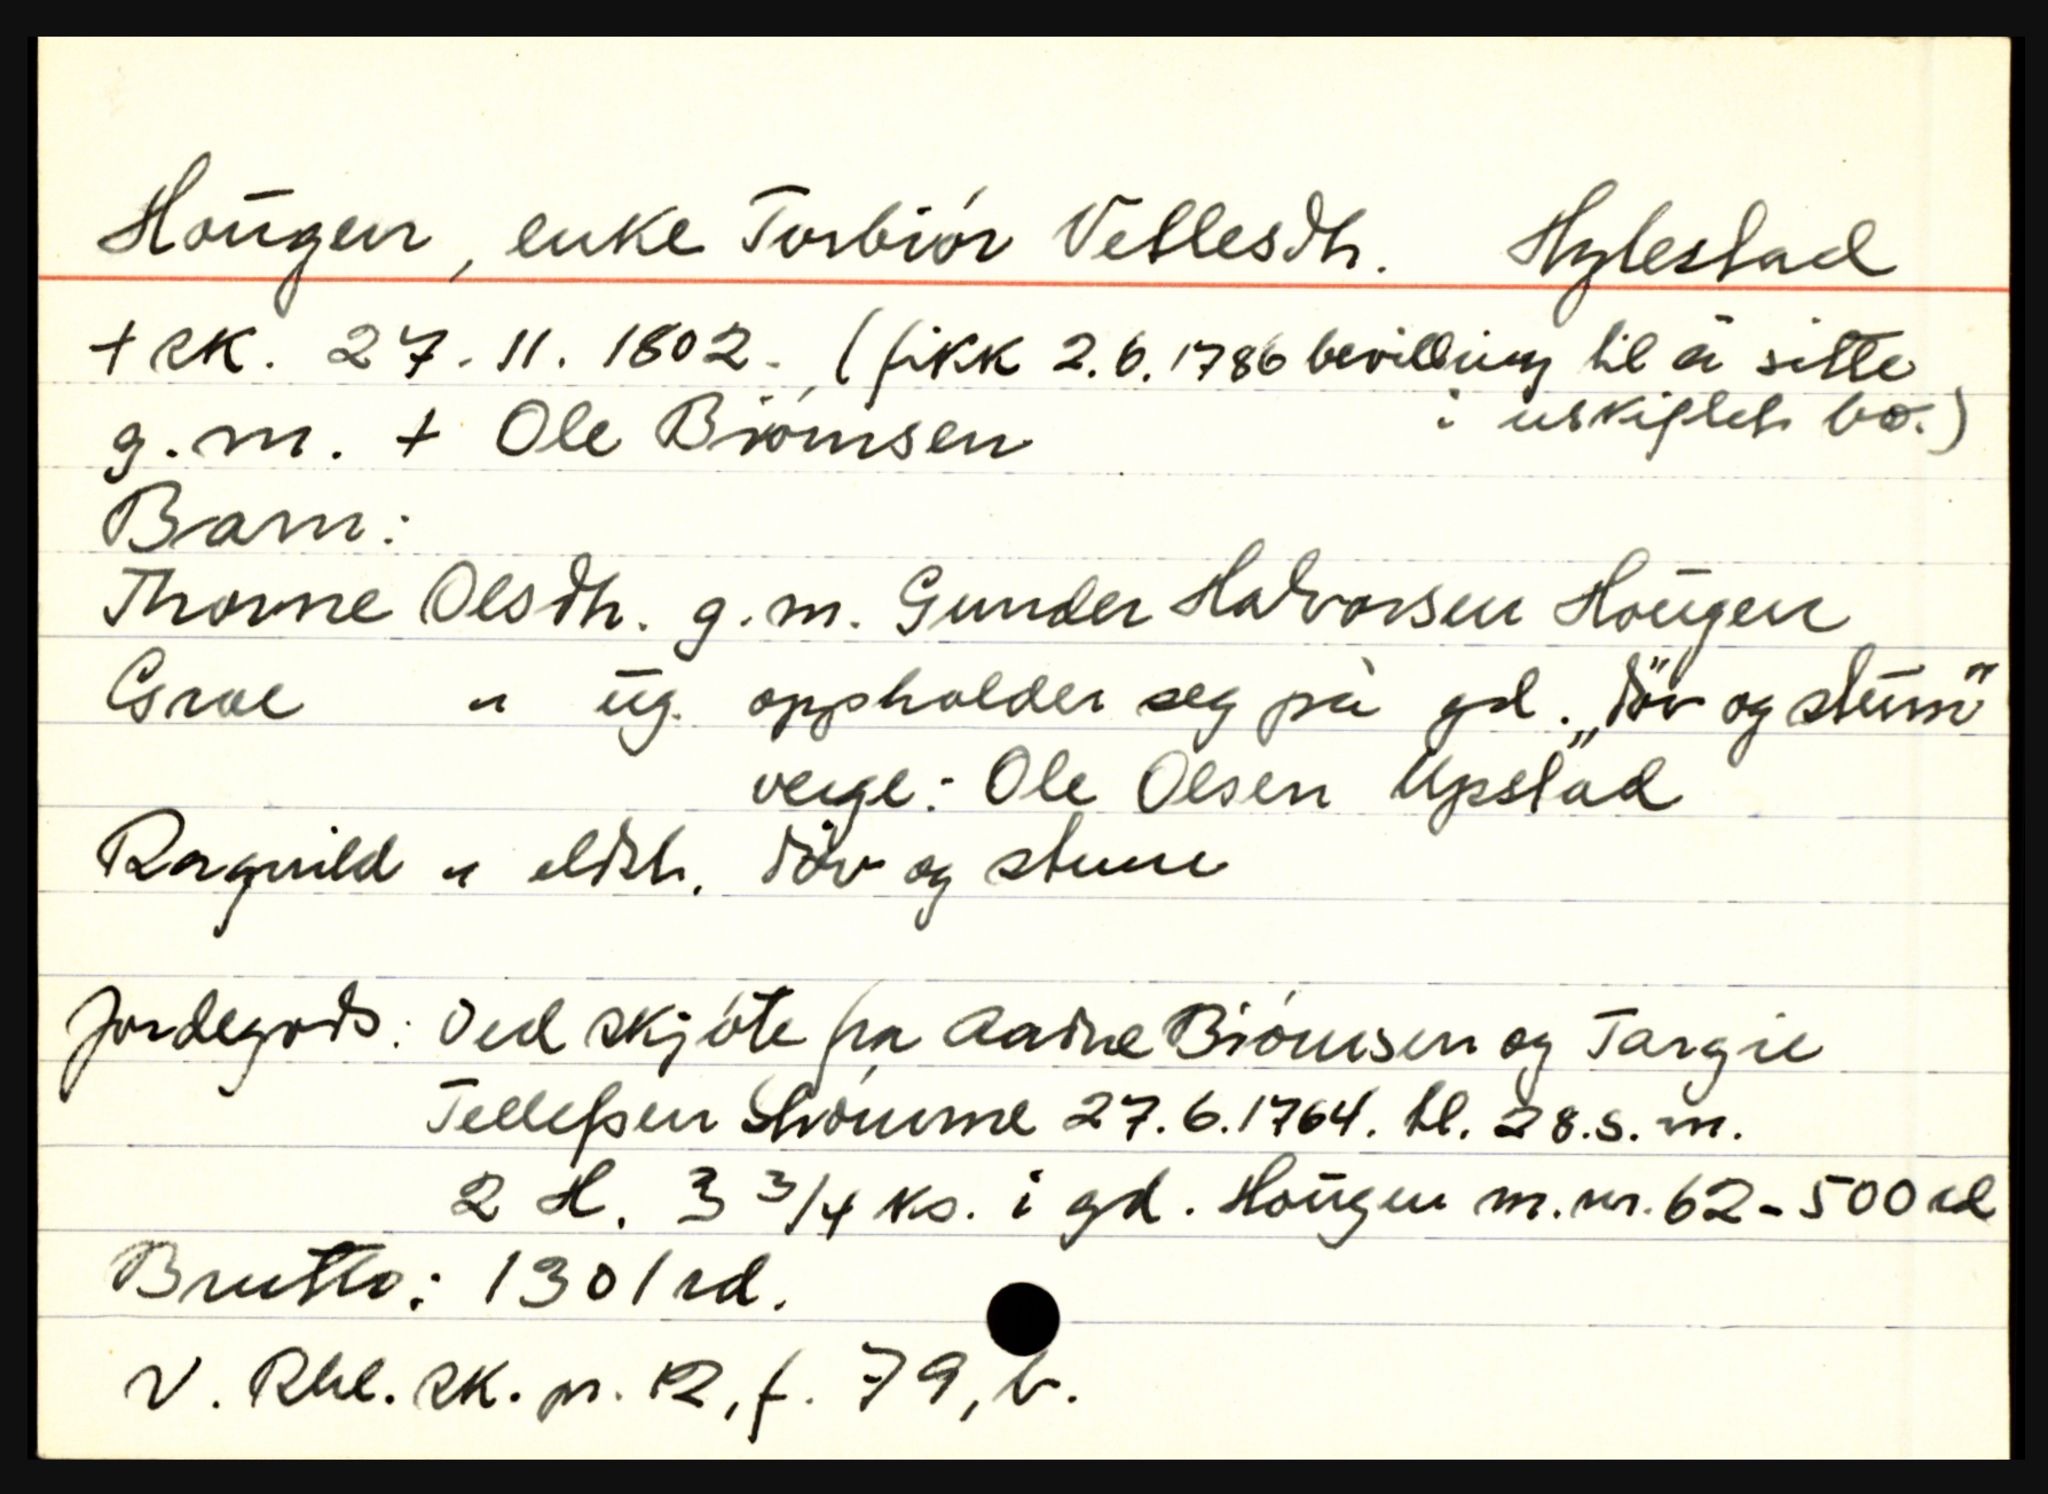 Hougen, enke Torbiör Vetlesdtr. Hylestad
+ sk. 27.11.1802. (fikk 2.6.1786 bevilling til å sitte
i uskiftet bo.)
g.m. + Ole Biörnsen
Barn:
Thorne Olsdtr. g.m. Gunder Halvorsen Hougen
Groe " ug. oppholder seg på gd. „döv og stum"
verge: Ole Olsen Upstad
Ragnild " eldst. döv og stum
Jordegods: Ved skjöte fra Aadne Biörnsen og Targie
Tellefsen Strömme 27.6.1764. tl. 28.s.m.
2 H. 3 3/4 ks. i gd. Hougen m.nr. 62 - 500 rd
Brutto: 1301 rd.
V. Rbl. sk. pr. 12, f. 79, b.